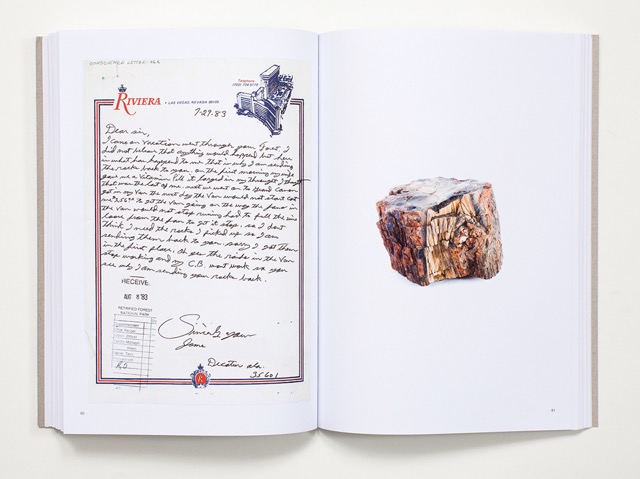 CONSCIENCE LETTER
Telephone
RIVIERA • LAS VEGAS, NEVADA 89109
7-29-83
Dear Sir,
I came on Vacation went through your Forest, I
did not believe that anything would happened but here
is what has happened to me that is why I am sending
the rocks back to you. On the first morning my wife
gave us a Vitamin Pill it lodged in my throught I thought
that was the last of me. next we went on to Grand Canyon
got in my Van the next day the Van would not start cost
me to get the Van going on the way the fan in
the Van would not stop running had to pull the wire
loose from the fan to get it stop, so I dont
think I need the rocks I picked up so I am
sending them back to you. sorry I got them
in the first place. Oh yes the radio in the Van
stop working and my C.B. wont work so you
see why I am sending your rocks back.
RECEIVE
AUG 8 '83
PETRIFIED FOREST
NATIONAL PARK
Superintendent
Sincerly your
Decatur ala.
35601
R
80
81